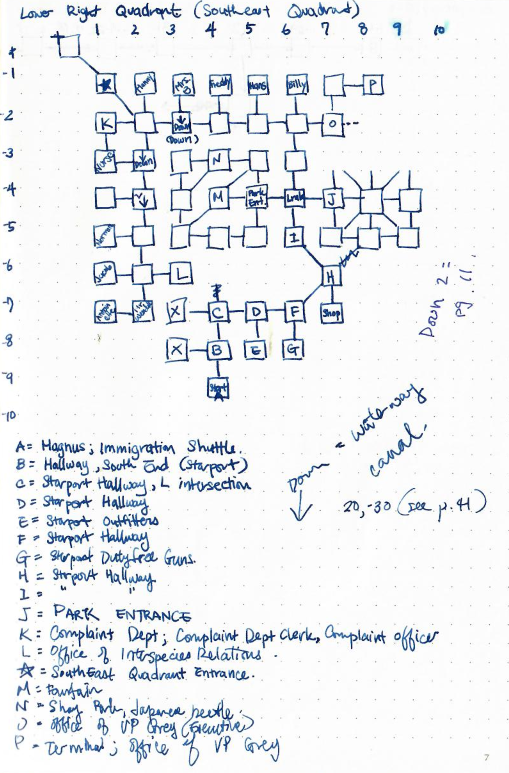 Lower Right Quadrant (Southeast Quadrant)
1 2 3 4 5 6 7 8 9 10
-1 ☆ Mrs. O Freddy Hans Billy P
-2 K ↓ Down O --
(Down)
-3 Nurse ↓ Down N
-4 M Park Ent. J
-5 Normal I
-6 L H
-7 X C D F Shop
-8 X B E G
-9 Start A
-10
Down 2 =
pg. 11...
Down = waterway
canal.
↓ 20,-30 (see p.41)
A = Magnus; Immigration Shuttle.
B = Hallway, South End (Starport)
C = Starport Hallway, L intersection
D = Starport Hallway
E = Starport Outfitters
F = Starport Hallway
G = Starport Dutyfree Guns.
H = Starport Hallway
I = " "
J = PARK ENTRANCE
K = Complaint Dept; Complaint Dept Clerk, Complaint officer
L = Office of Interspecies Relations.
☆ = SouthEast Quadrant Entrance.
M = Fountain
N = Park, Japanese beetle.
O = Office of VP Grey (Executive)
P = Terminal; Office of VP Grey
7